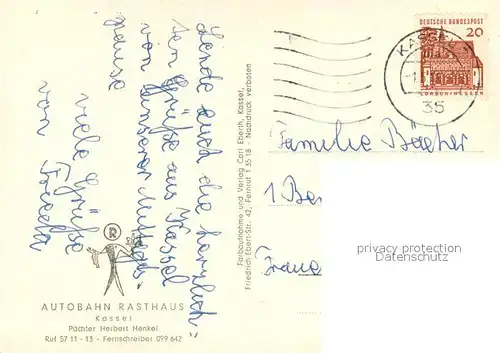 Sende euch die herzlich-
sten Grüße aus Kassel
von unserer Mittags-
pause
viele Grüße
von
AUTOBAHN RASTHAUS
Kassel
Pächter Herbert Henkel
Ruf 57 11 - 13 - Fernschreiber 099 642
Farbaufnahme und Verlag Carl Eberth, Kassel,
Friedrich-Ebert-Str. 42, Fernruf 1 35 18 · Nachdruck verboten
DEUTSCHE BUNDESPOST
20
LORSCH/HESSEN
KASSEL
35
Familie Bücher
1 Ber
privacy protection
Datenschutz
R